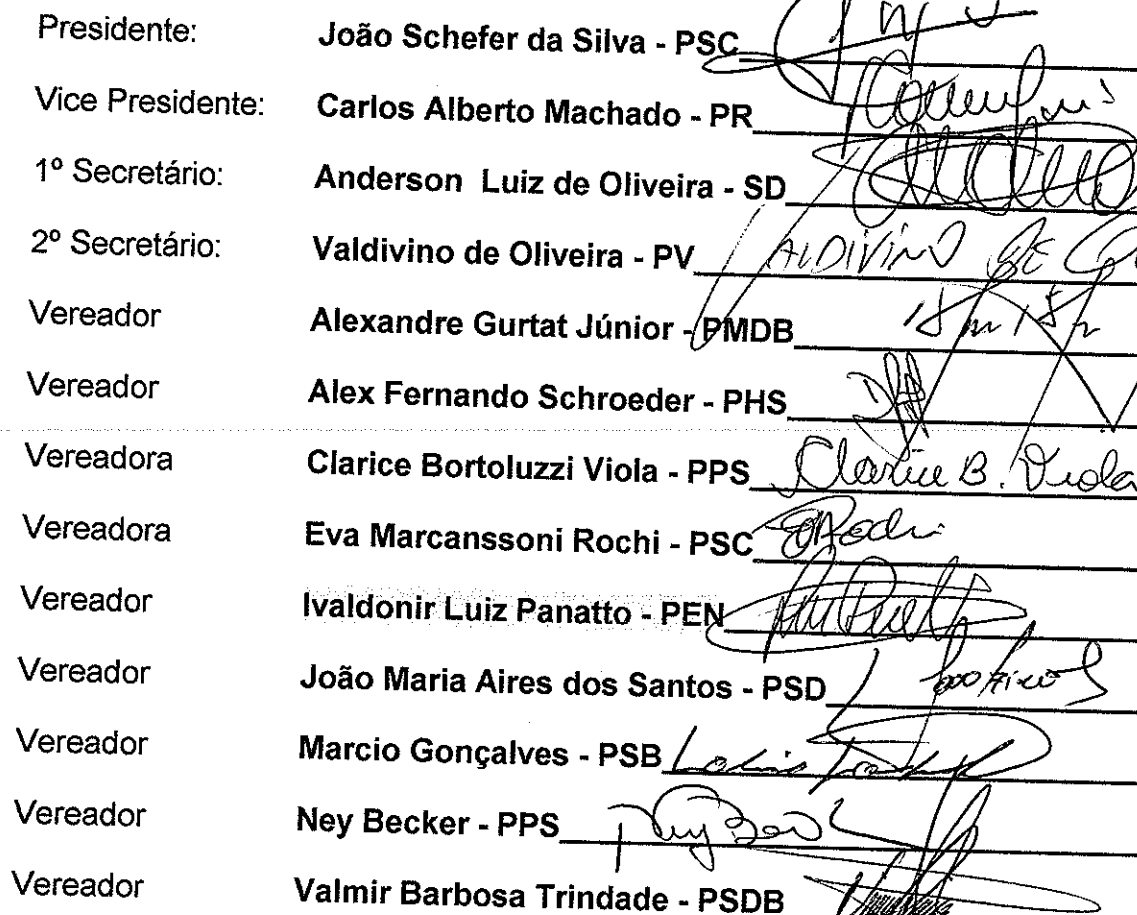 Presidente: João Schefer da Silva - PSC
Vice Presidente: Carlos Alberto Machado - PR
1º Secretário: Anderson Luiz de Oliveira - SD
2º Secretário: Valdivino de Oliveira - PV ALDIVINO DE
Vereador Alexandre Gurtat Júnior - PMDB
Vereador Alex Fernando Schroeder - PHS
Vereadora Clarice Bortoluzzi Viola - PPS Clarice B. Viola
Vereadora Eva Marcanssoni Rochi - PSC
Vereador Ivaldonir Luiz Panatto - PEN
Vereador João Maria Aires dos Santos - PSD
Vereador Marcio Gonçalves - PSB
Vereador Ney Becker - PPS
Vereador Valmir Barbosa Trindade - PSDB